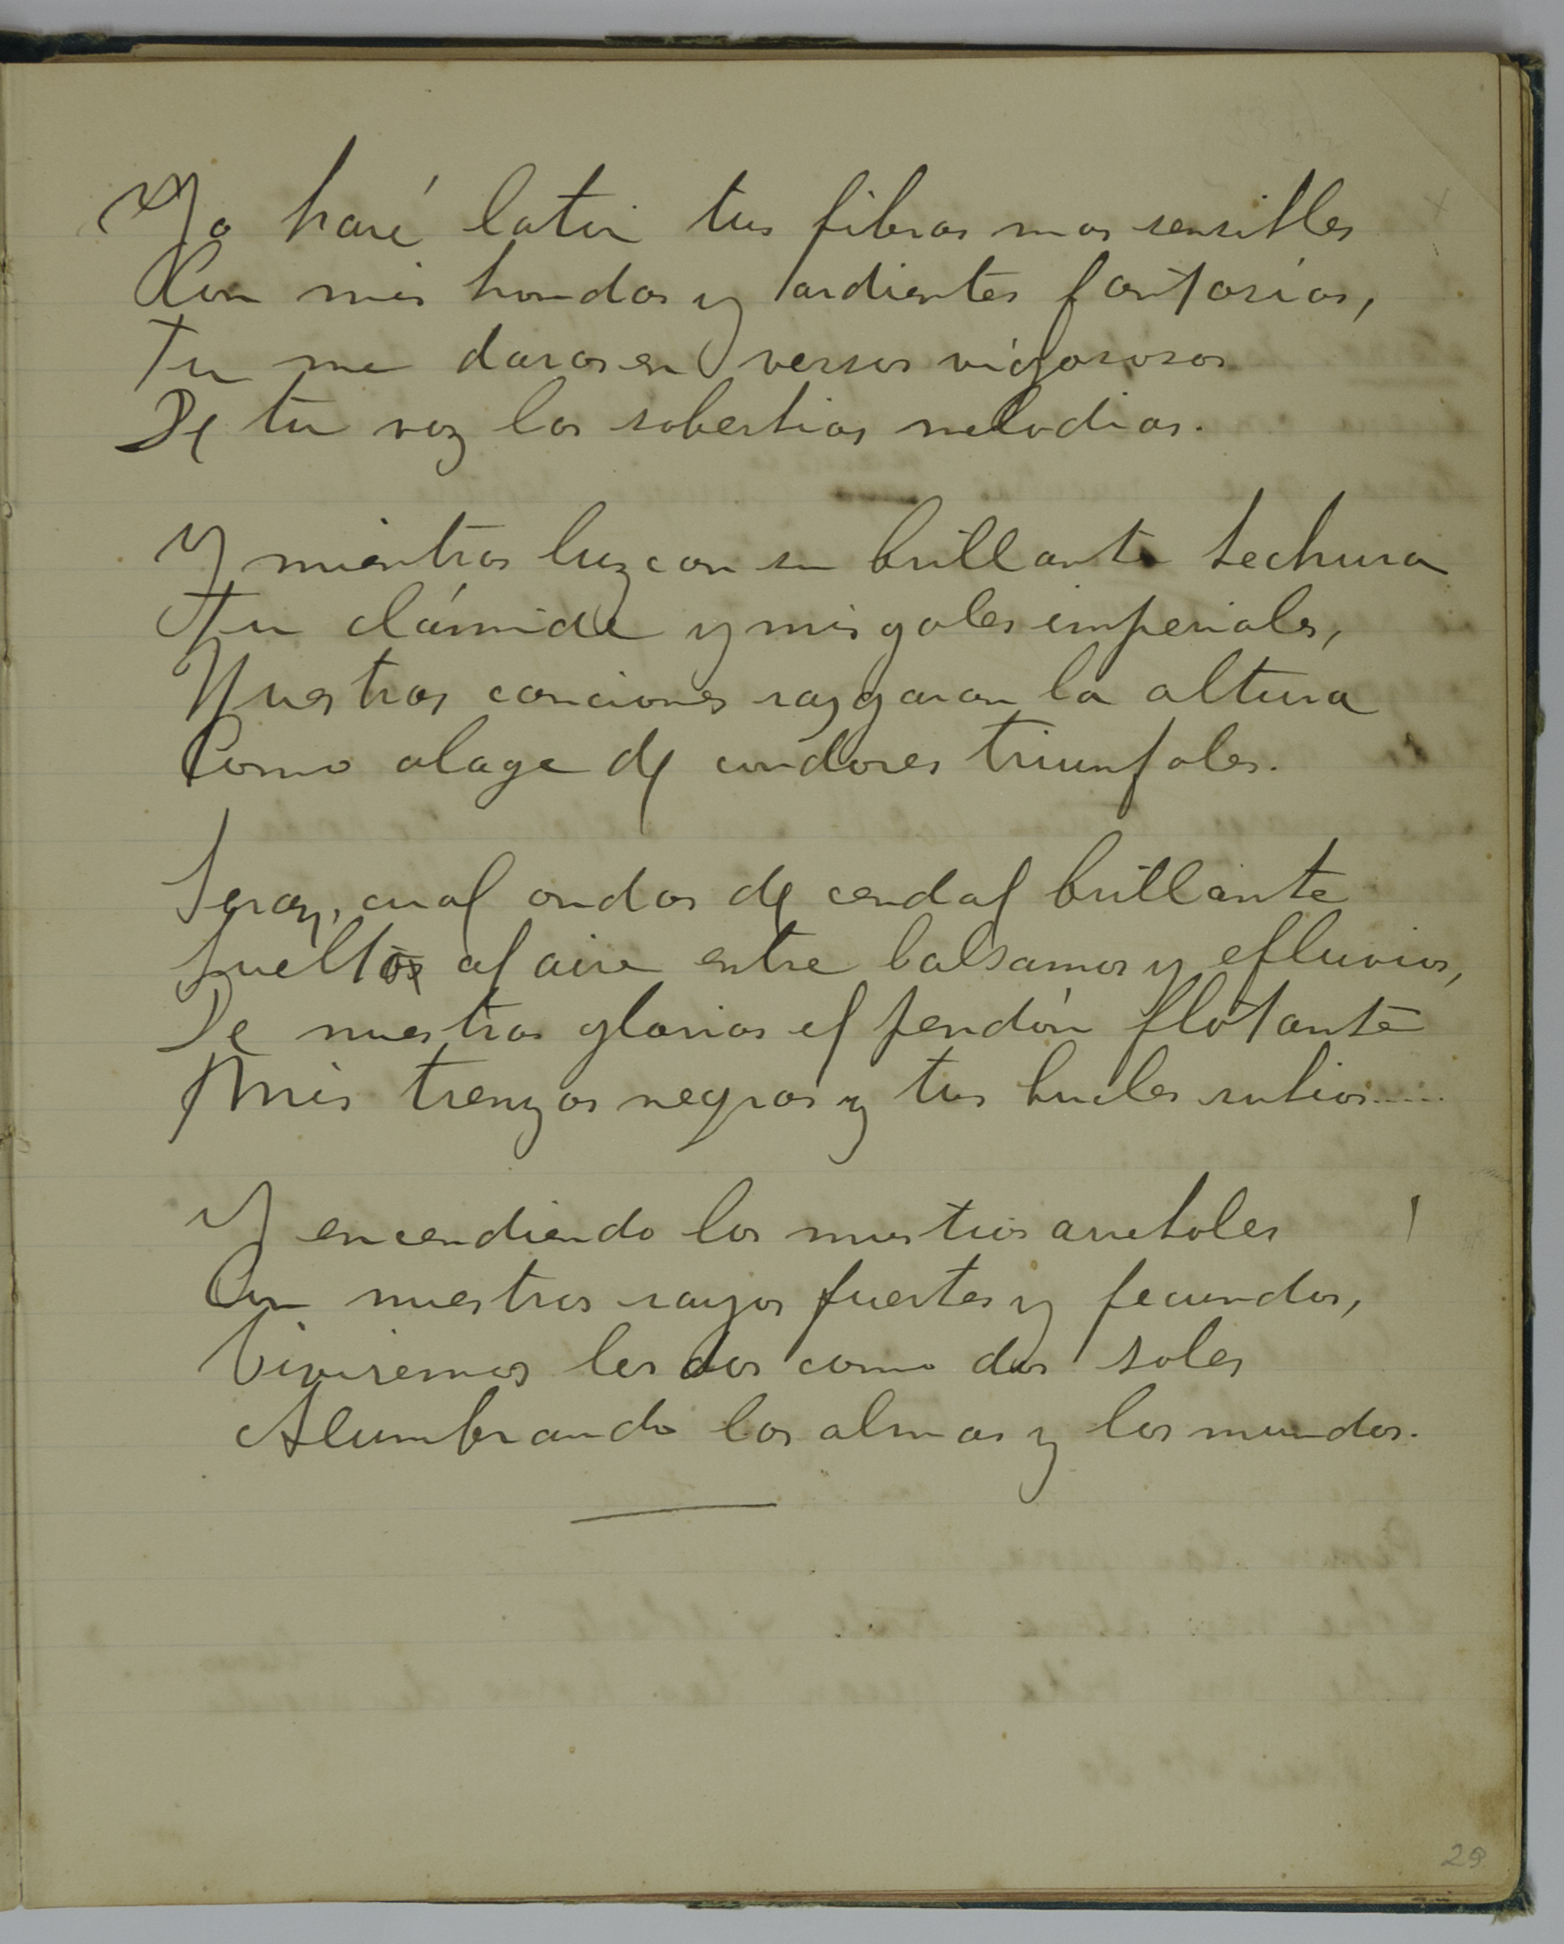 Yo haré latir tus fibras mas sensibles
Con mis hondas y ardientes fantasías,
Tu me daras en versos vigorosos
De tu voz las soberbias melodias.
Y mientras luzcan su brillante hechura
Tu clámide y mis galas imperiales,
Nuestras canciones razgaran la altura
Como alage de condores triunfales.
Seran, cual ondas de cendal brillante
Sueltos al aire entre balsamos y efluvios,
De nuestras glorias el pendón flotante
Mis trenzas negras y tus bucles rubios.....
Y encendiendo los mustios arreboles
Con nuestros rayos fuertes y fecundos,
Viviremos los dos como dos soles
Alumbrando las almas y los mundos.
29